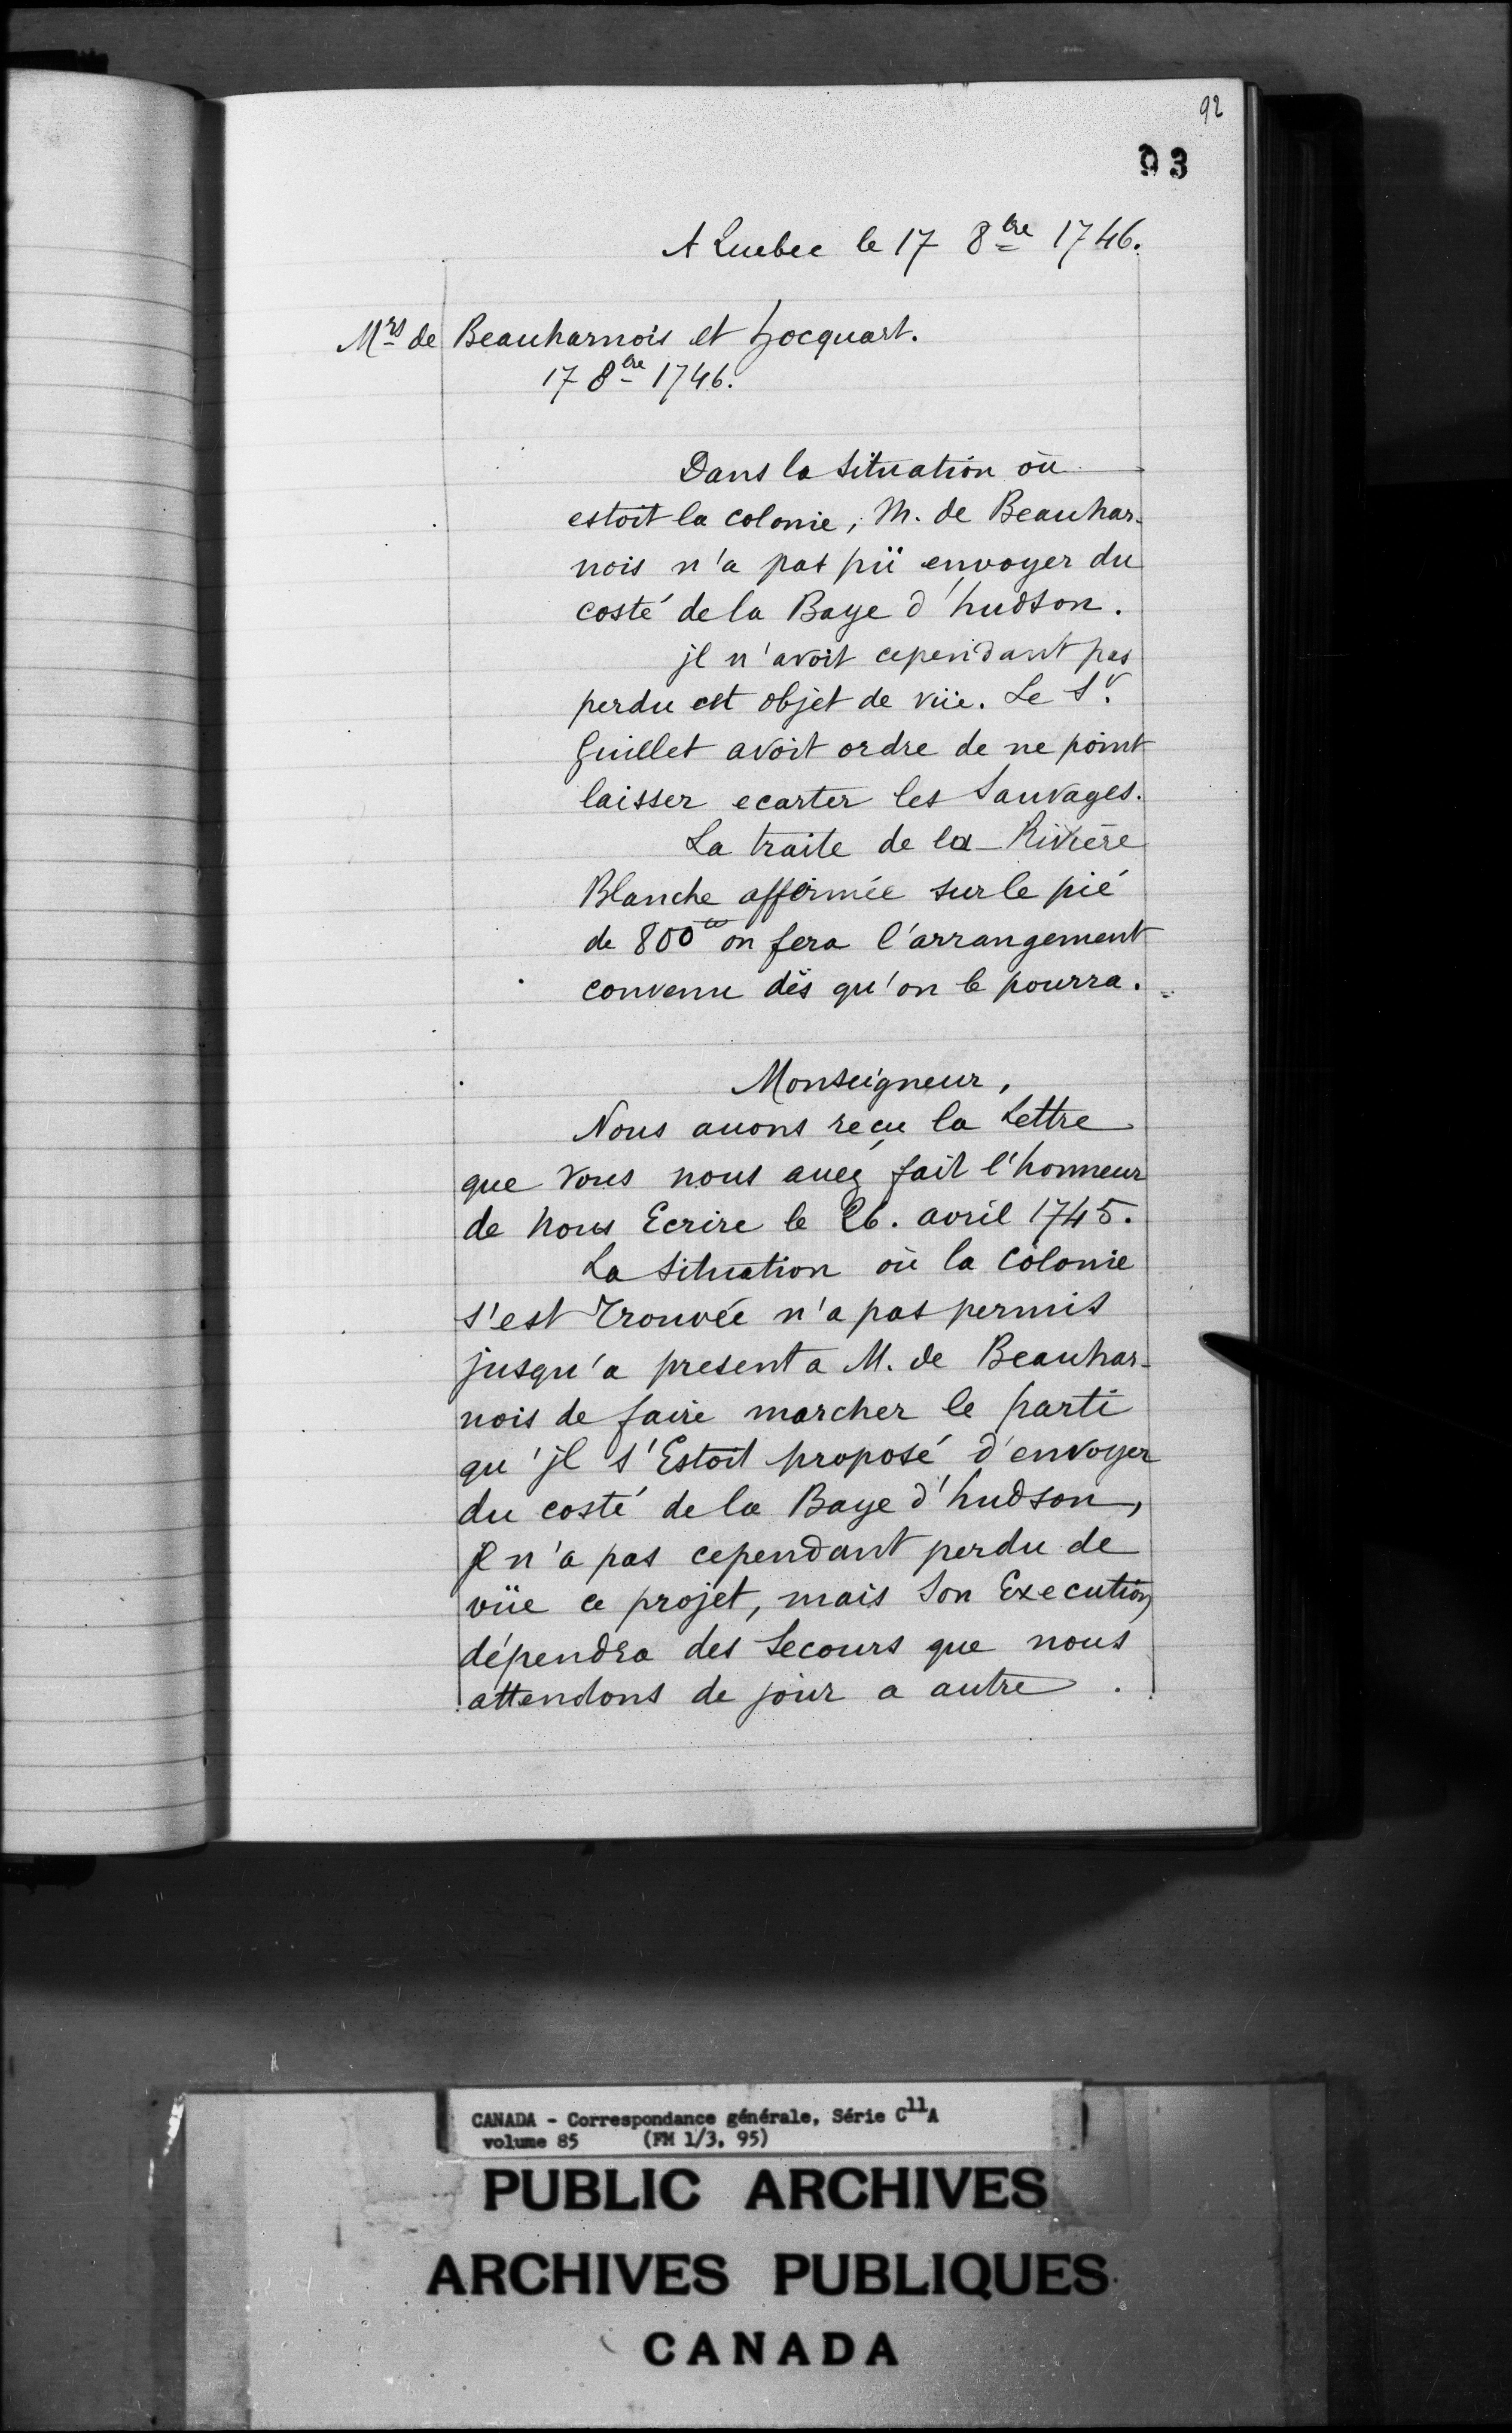 92
93
A Quebec le 17 8bre 1746.
Mrs de Beauharnois et hocquart.
17 8bre 1746.
Dans la Situation où
estoit la colonie, M. de Beauhar-
nois n'a pas pü envoyer du
costé de la Baye d'hudson.
jl n'avoit cependant pas
perdu cet objet de vüe. Le Sr.
Guillet avoit ordre de ne point
laisser ecarter les Sauvages.
La traite de la Rivière
Blanche affermée sur le pié
de 800lt on fera l'arrangement
convenu dès qu'on le pourra.
Monseigneur,
Nous auons reçu la Lettre
que Vous nous auez fait l'honneur
de nous Ecrire le 26. avril 1745.
La Situation où la Colonie
s'est Trouvée n'a pas permis
jusqu'a present a M. de Beauhar-
nois de faire marcher le parti
qu'jl s'Estoit proposé d'envoyer
du costé de la Baye d'hudson,
jl n'a pas cependant perdu de
vüe ce projet, mais Son Execution
dépendra des Secours que nous
attendons de jour a autre.
CANADA - Correspondance générale, Série C11A
volume 85 (FM 1/3, 95)
PUBLIC ARCHIVES
ARCHIVES PUBLIQUES
CANADA